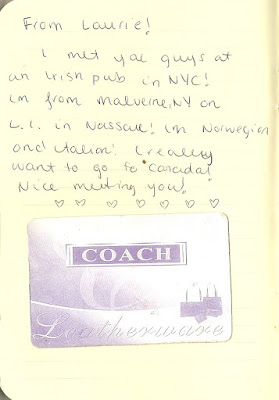 From Laurie!
I met yae guys at
an Irish pub in NYC!
im from malverne, NY on
L.I. in Nassau! Im Norwegian
and Italian! I really
want to go to Canada!
Nice meeting you!
♡ ♡ ♡ ♡ ♡ ♡ ♡
COACH
Leatherware